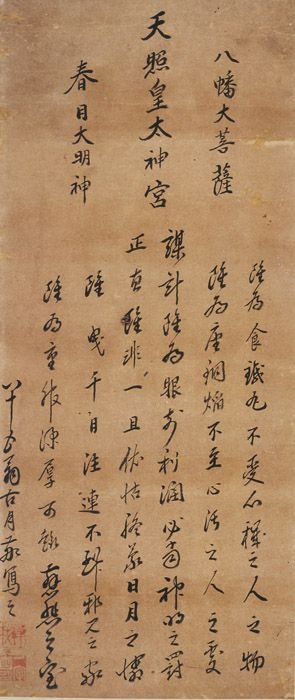 八幡大菩薩
天照皇太神宮
春日大明神
雖為食鐵丸不受心穢之人之物
雖為座銅焔不至心汚之人之處
謀計雖為眼前利潤必當神明之罸
正直雖非一旦依怙終蒙日月之憐
雖曳千日注連不到邪見之家
雖為重服深厚可趣慈悲之室
八十五翁古月敬寫之